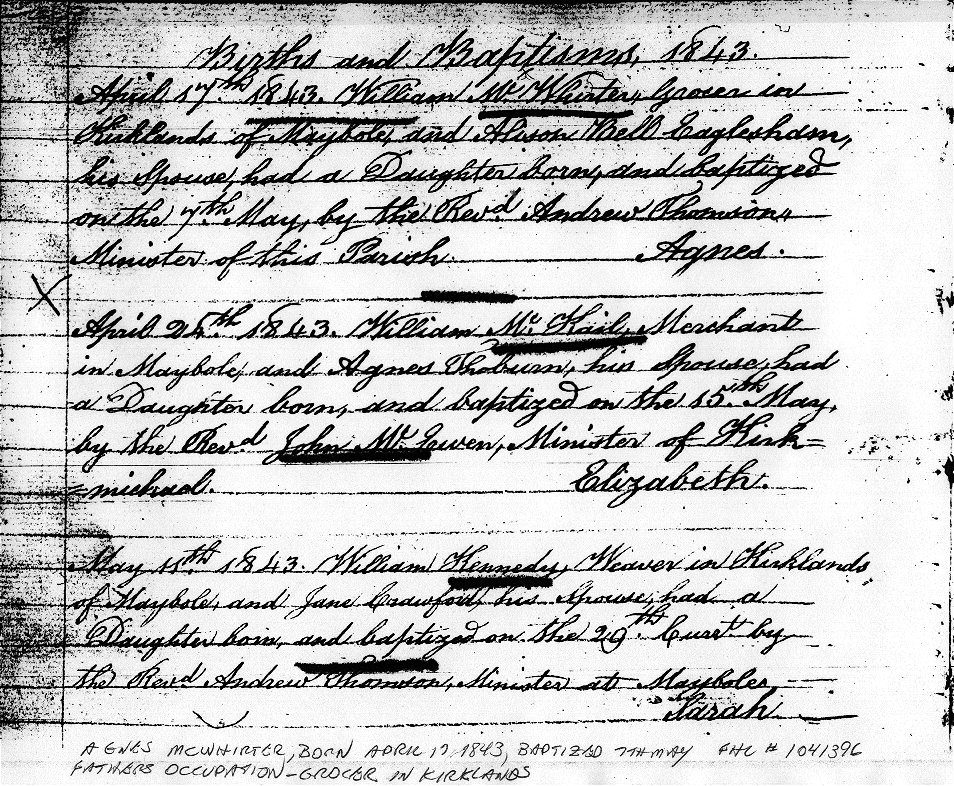 Births and Baptisms, 1843.
April 17th 1843. William Mc.Whirter, Grocer in
Kirklands of Maybole, and Alison Bell Eaglesham,
his Spouse, had a Daughter born, and baptized
on the 7th May, by the Revd Andrew Thomson,
Minister of this Parish. Agnes.
X
April 24th 1843. William Mc.Kail, Merchant
in Maybole, and Agnes Thoburn, his Spouse, had
a Daughter born, and baptized on the 15th May,
by the Revd John Mc.Ewen, Minister of Kirk=
=michael. Elizabeth.
May 11th 1843. William Kennedy, Weaver in Kirklands
of Maybole, and Jane Crawford, his Spouse, had a
Daughter born, and baptized on the 29th Currt by
the Revd Andrew Thomson, Minister at Maybole,
Sarah.
AGNES MCWHIRTER, BORN APRIL 17 1843, BAPTIZED 7TH MAY FHL # 1041396
FATHERS OCCUPATION - GROCER IN KIRKLANDS